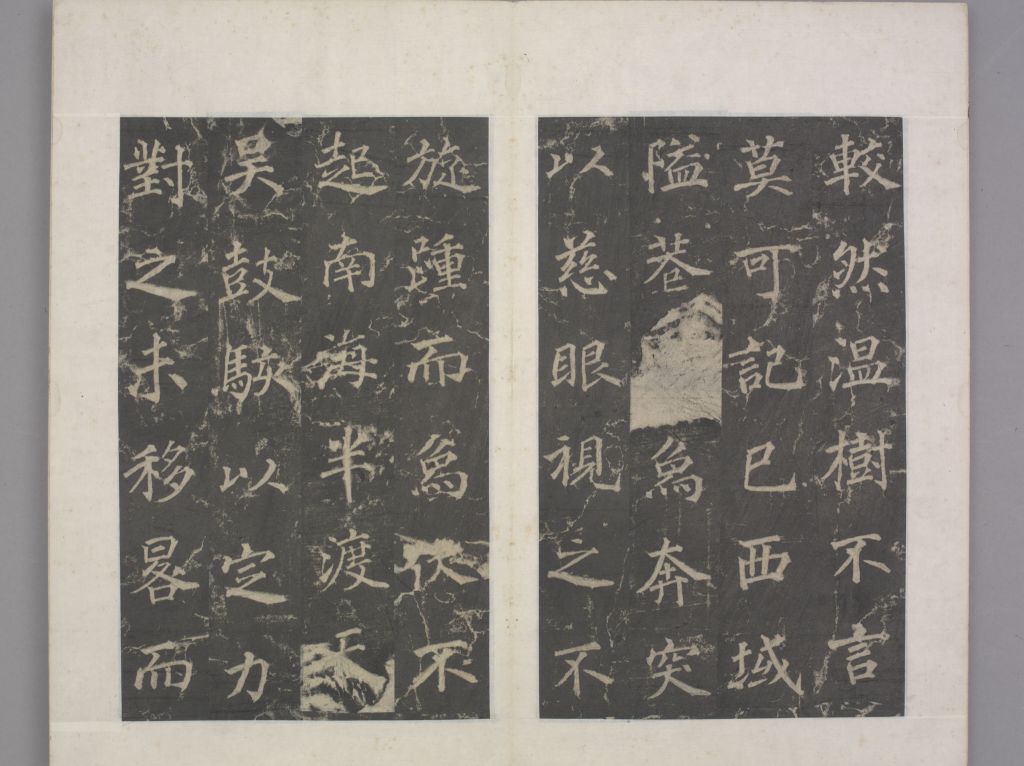 較然温樹不言
莫可記已西域
隘巷爲奔突
以慈眼視之不
旋踵而爲伏不
起南海半渡
吴鼓駭以定力
對之未移晷而